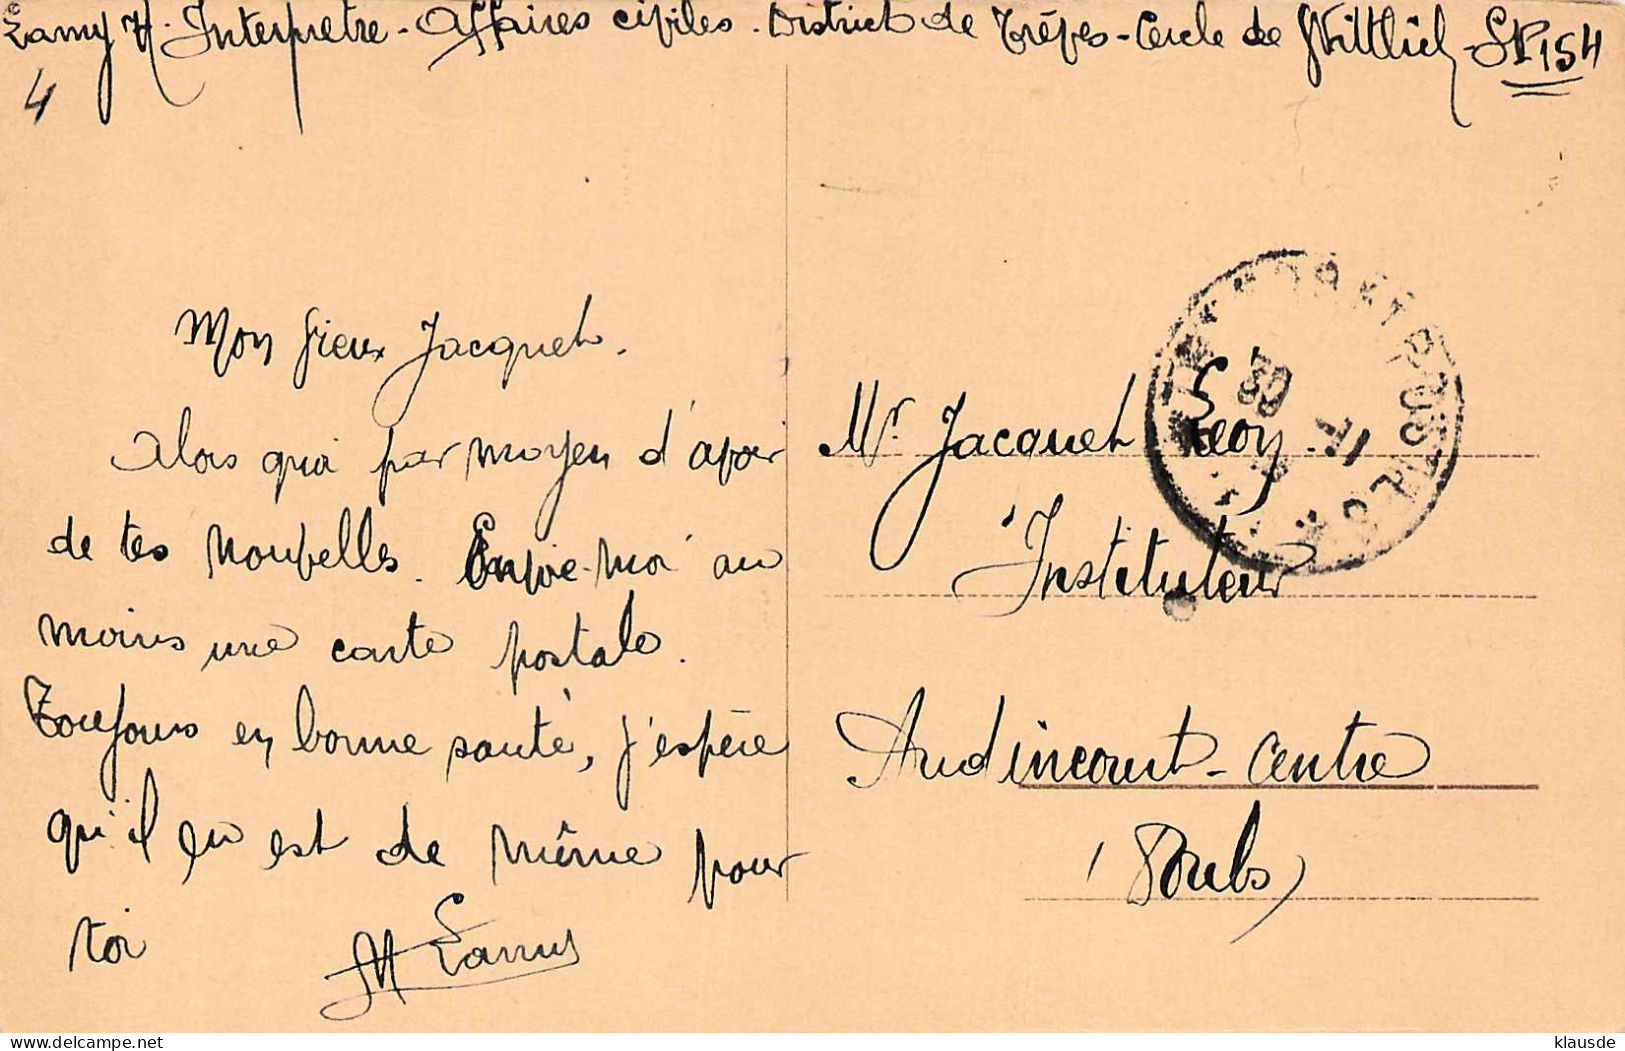 Lamy H. Interprètre - Affaires civiles. District de Trêves - Cercle de Wittlich - SP 154
4
Mon vieux Jacquet.
Alors quoi pas moyen d'avoir
de tes nouvelles. Envoie-moi au
moins une carte postale.
Toujours en bonne santé, j'espère
qu'il en est de même pour
toi
H Lamy
Mr. Jacquet Léon
Instituteur
Audincourt - Centre
(Doubs)
POSTES
klausde